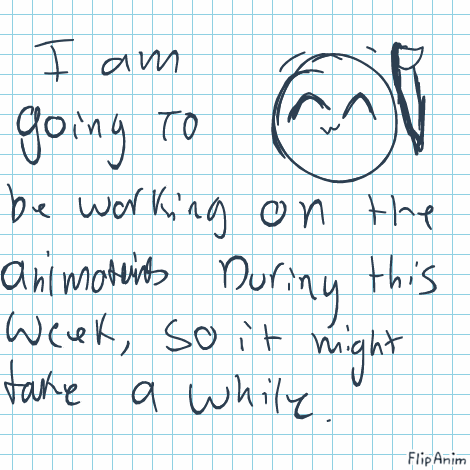 I am
going to
be working on the
animations During this
week, so it might
take a while.
FlipAnim